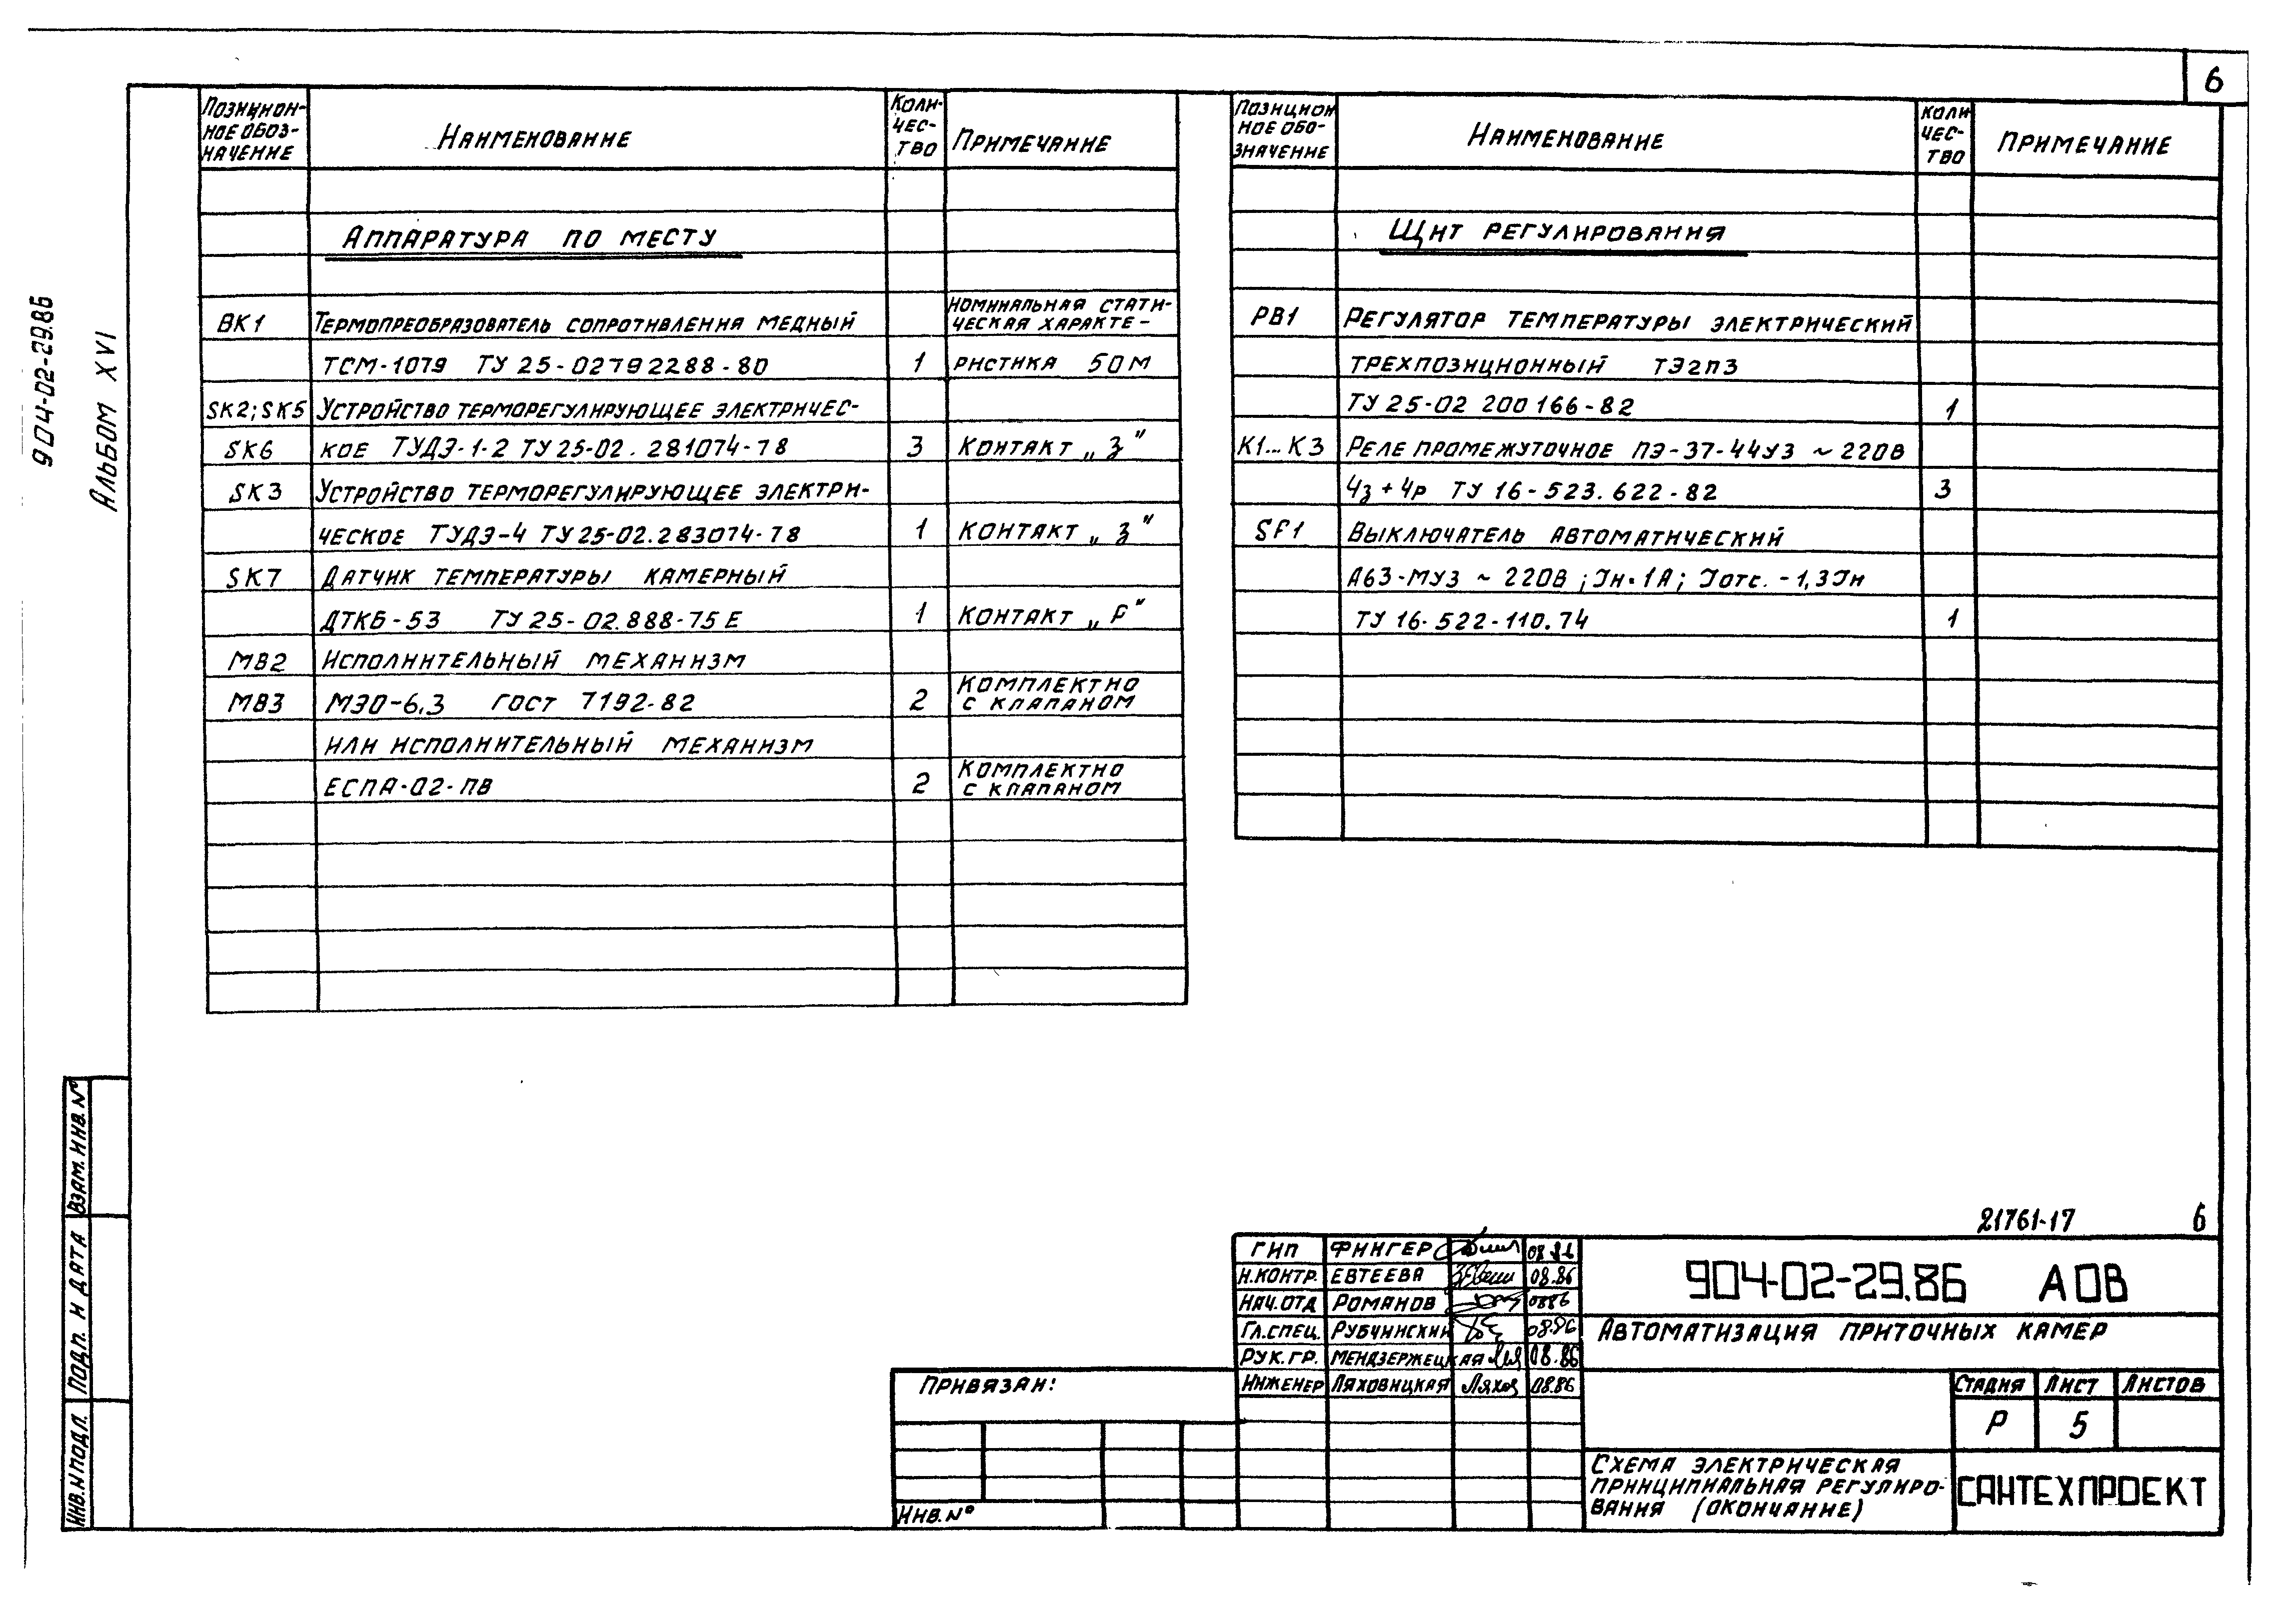 6
904-02-29.86
Альбом XVI
Позицион-
ное обоз-
начение
Наименование
Коли-
чес-
тво
Примечание
Аппаратура по месту
ВК1 Термопреобразователь сопротивления медный
Номинальная стати-
ческая характе-
ТСМ-1079 ТУ 25-02792288-80 1 ристика 50М
SK2; SK5 Устройство терморегулирующее электричес-
SK6 кое ТУДЭ-1-2 ТУ 25-02. 281074-78 3 Контакт „З"
SK3 Устройство терморегулирующее электри-
ческое ТУДЭ-4 ТУ 25-02.283074-78 1 Контакт „З"
SK7 Датчик температуры камерный
ДТКБ-53 ТУ 25-02.888-75Е 1 Контакт „Р"
МВ2 Исполнительный механизм
МВ3 МЭО-6,3 ГОСТ 7192-82 2 Комплектно
с клапаном
или исполнительный механизм
ЕСПА-02-ПВ 2 Комплектно
с клапаном
Позицион
ное обо-
значение
Наименование
Коли
чес-
тво
Примечание
Щит регулирования
РВ1 Регулятор температуры электрический
трехпозиционный ТЭ2П3
ТУ 25-02 200166-82 1
К1...К3 Реле промежуточное ПЭ-37-44У3 ~220В
4з+4р ТУ 16-523.622-82 3
SF1 Выключатель автоматический
А63-МУ3 ~220В; Iн=1А; Iотс.-1,3Iн
ТУ 16-522-110.74 1
Взам. инв. №
Подп. и дата
Инв. № подл.
21761-17 6
ГИП Фингер
Н.контр. Евтеева 08.86
Нач.отд Романов 0886
Гл.спец. Рубчинский 08.86
Рук.гр. Мендзержецкая 08.86
Инженер Ляховицкая Ляхов 08.86
904-02-29.86 АОВ
Автоматизация приточных камер
Стадия Лист Листов
Р 5
Схема электрическая
принципиальная регулиро-
вания (окончание)
САНТЕХПРОЕКТ
Привязан:
Инв. №